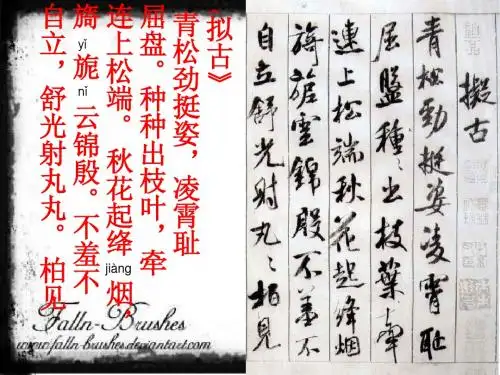 拟古》
青松劲挺姿，凌霄耻
屈盘。种种出枝叶，牵
连上松端。 秋花起绛 jiàng 烟
旖 yǐ 旎 nǐ 云锦殷。不羞不
自立，舒光射丸丸。 柏见
Falln-Brushes
www.falln-brushes.deviantart.com
擬古
青松勁挺姿凌霄耻
屈盤種〻出枝葉牽
連上松端秋花起絳烟
旖旎雲錦殷不羞不
自立舒光射丸〻柏見